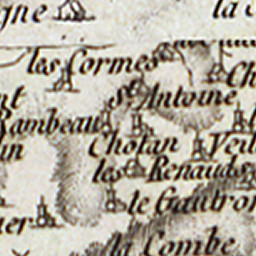 gne
la C
les Cormes
Ch
nt
St. Antoine
Rambeau
in
Cholan
Veil
les Renauds
le Gautron
ner
la Combe